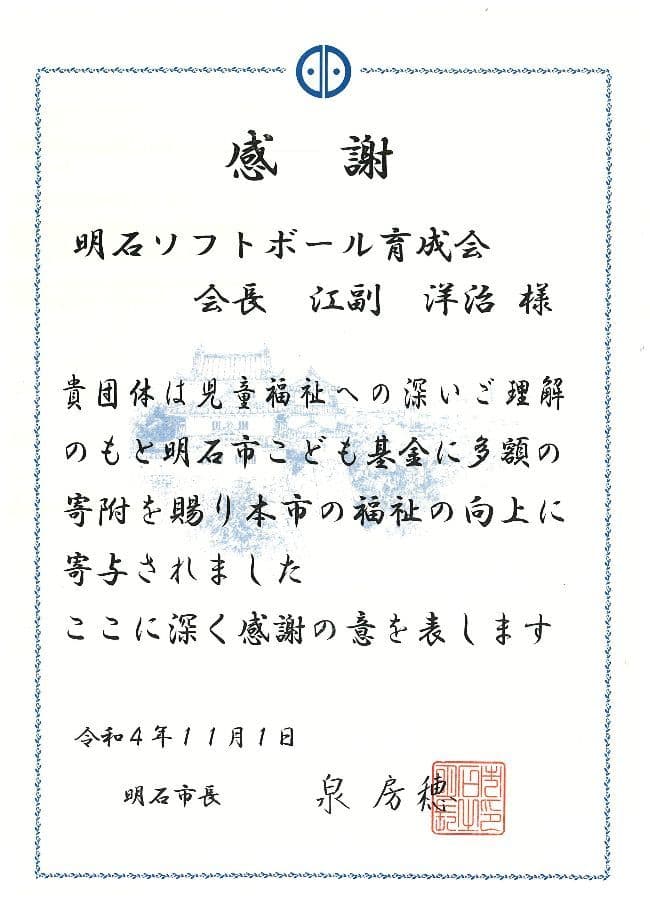 感 謝
明石ソフトボール育成会
会長 江副 洋治 様
貴団体は児童福祉への深いご理解
のもと明石市こども基金に多額の
寄附を賜り本市の福祉の向上に
寄与されました
ここに深く感謝の意を表します
令和4年11月1日
明石市長 泉 房穂